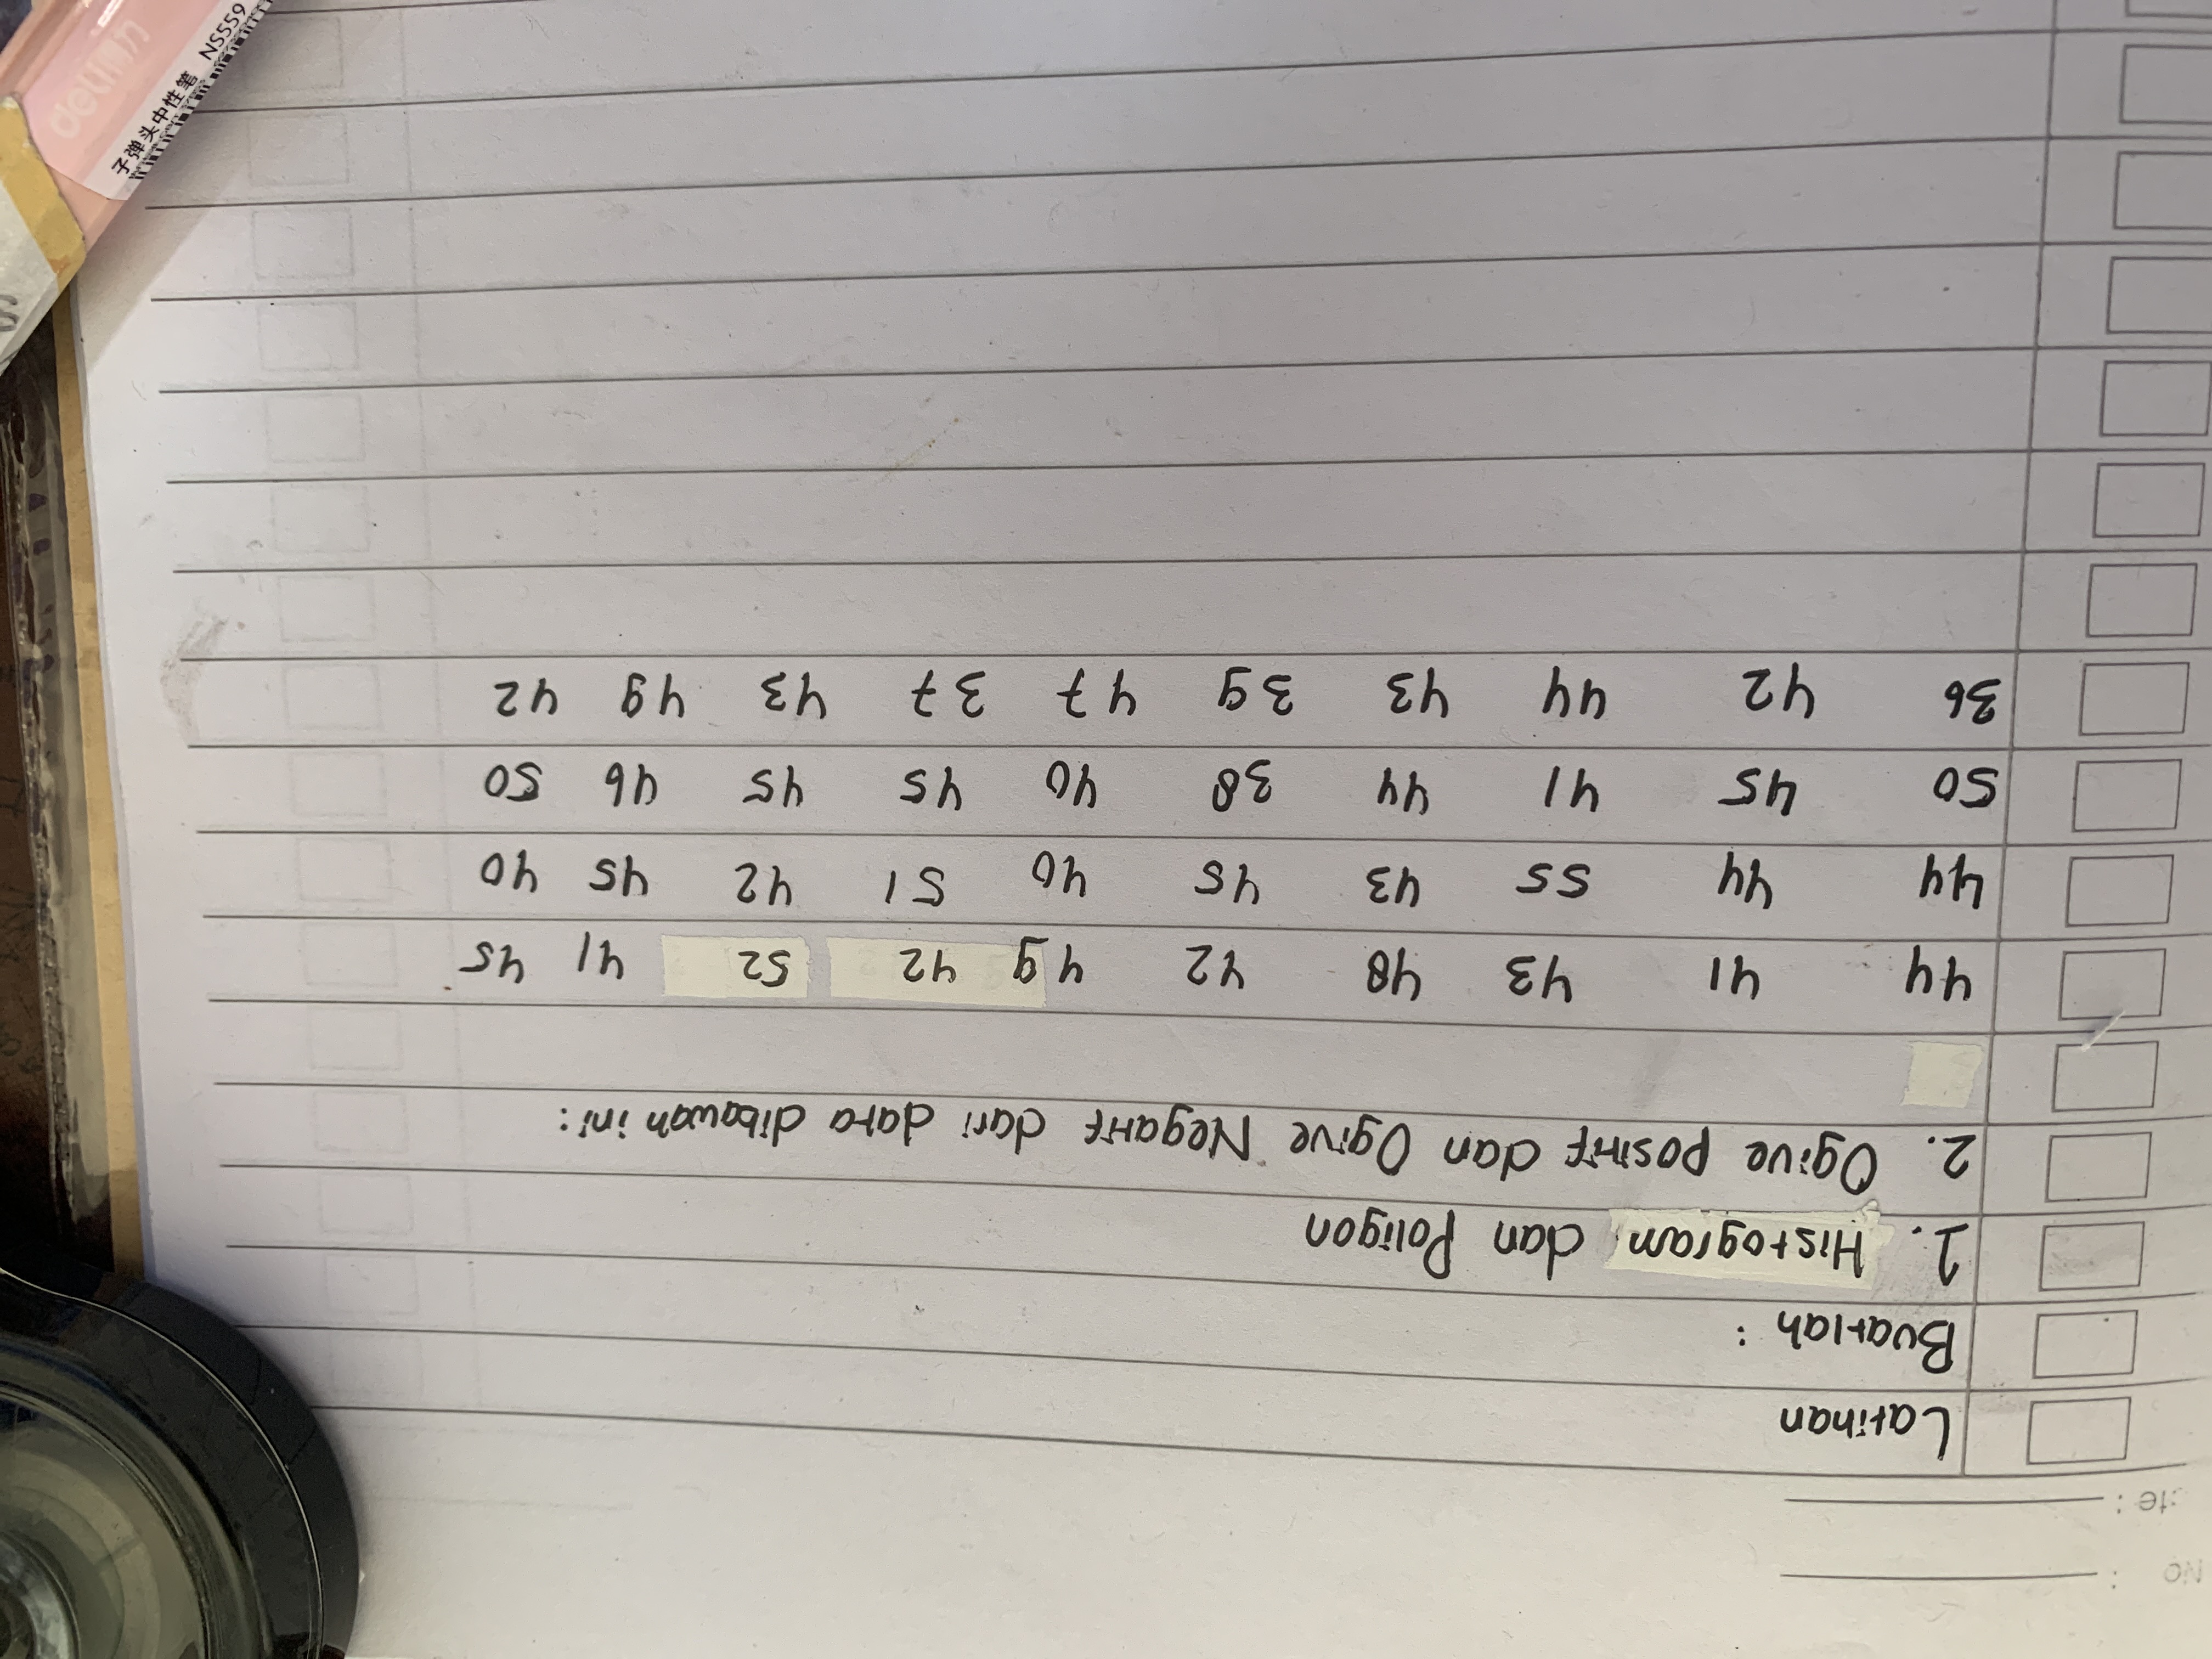 No :
te :
Latihan
Buatlah :
1. Histogram dan Poligon
2. Ogive Positif dan Ogive Negatif dari data dibawah ini :
44 41 43 48 42 49 42 52 41 45
44 44 55 43 45 40 51 42 45 40
50 45 41 44 38 40 45 45 46 50
36 42 44 43 39 47 37 43 49 42
deli 得力
子弹头中性笔 NS559